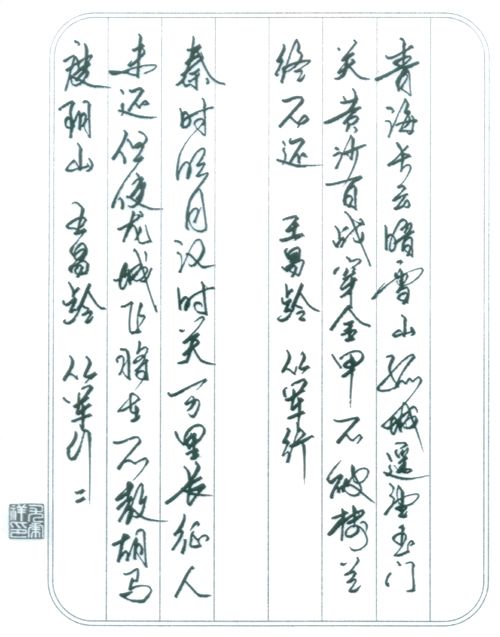 青海长云暗雪山孤城遥望玉门
关黄沙百战穿金甲不破楼兰
终不还 王昌龄 从军行
秦时明月汉时关万里长征人
未还但使龙城飞将在不教胡马
渡阴山 王昌龄 从军行二